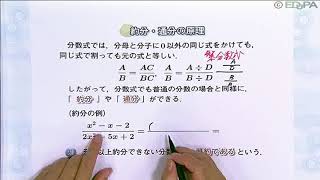 EDUPA
約分・通分の原理
分数式では，分母と分子に0以外の同じ式をかけても，
同じ式で割っても元の式と等しい。
A/B = AC/BC, A/B = A÷D/B÷D
したがって，分数式でも普通の分数の場合と同様に，
「約分」や「通分」ができる。
(約分の例)
x²－x－2/2x²－5x＋2 = ( =
以上約分できない分数
という。